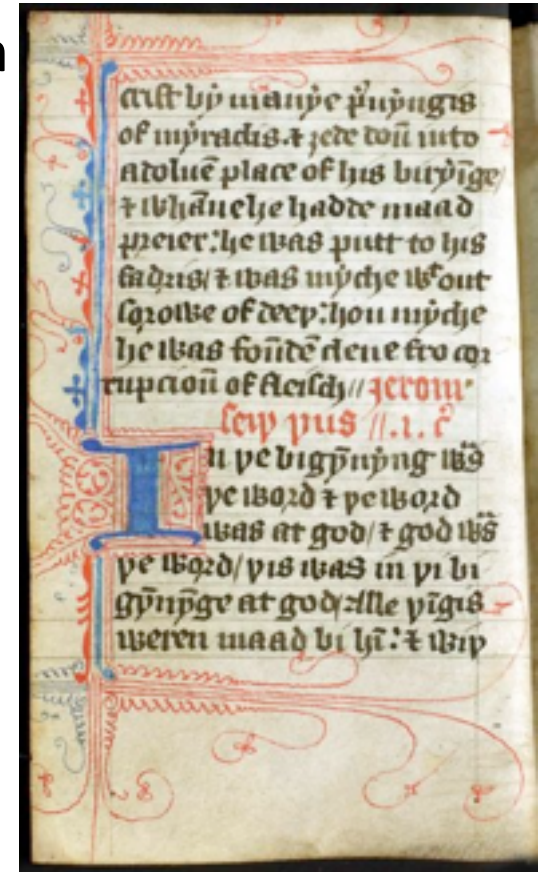 n
crist bẏ manẏe p̉uẏngis
of mẏraclis. ⁊ ȝede doū into
a doluē place of his biryīge/
⁊ whāne he hadde maad
preier: he was putt to his
fadris/ ⁊ was mẏche wͭout
sorowe of deeþ: hou mẏche
he was foūdē clene fro cor
rupcioū of fleisch// Jerom
seiþ þus //.i. c̉
In þe bigẏnẏng ws̄
þe word ⁊ þe word
was at god/ ⁊ god ws̄
þe word/ þis was in þi bi
gẏnẏge at god/ alle þīgis
weren maad bi hī: ⁊ wiþ